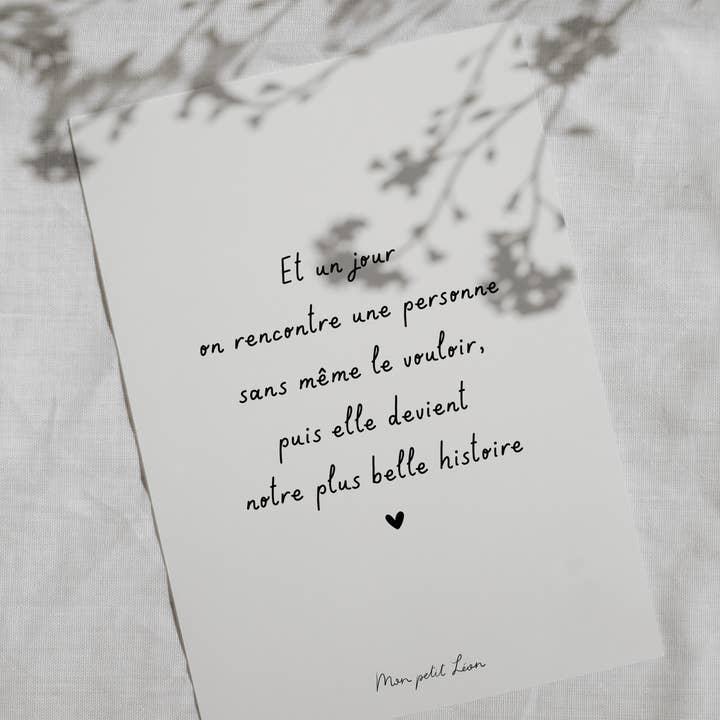 Et un jour
on rencontre une personne
sans même le vouloir,
puis elle devient
notre plus belle histoire
Mon petit Léon